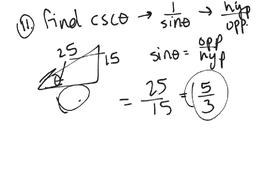 (11) find cscθ → 1/sinθ → hyp/opp
25
15
θ
sinθ = opp/hyp
= 25/15 = 5/3